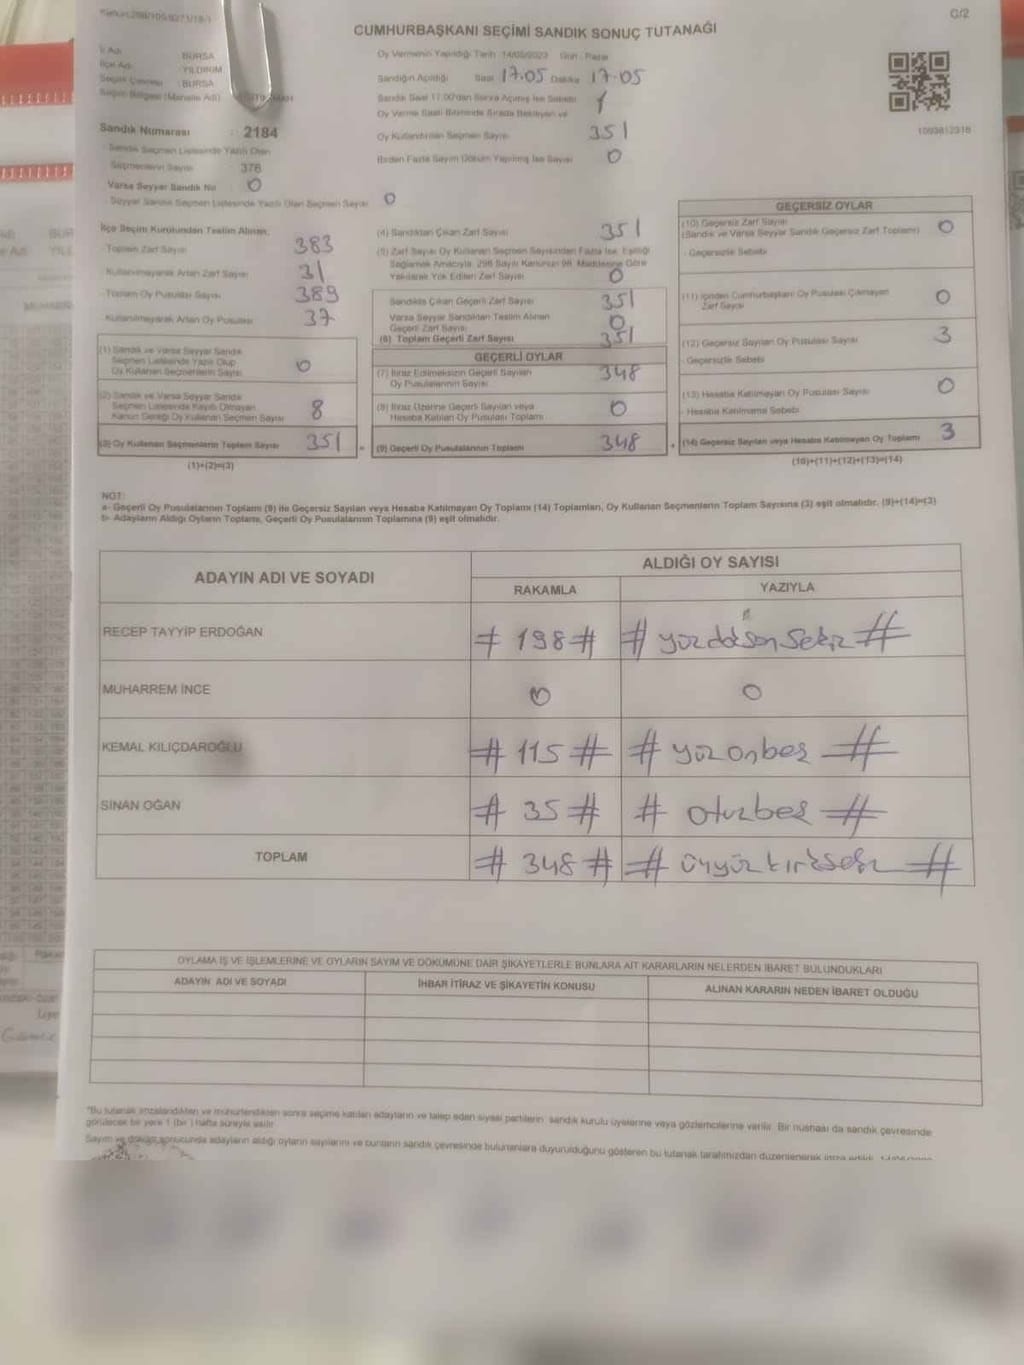 C/2
CUMHURBAŞKANI SEÇİMİ SANDIK SONUÇ TUTANAĞI
İl Adı : BURSA
İlçe Adı : YILDIRIM
Seçim Çevresi : BURSA
Seçim Bölgesi (Mahalle Adı)
Sandık Numarası : 2184
Sandık Seçmen Listesinde Yazılı Olan
Seçmenlerin Sayısı 376
Varsa Seyyar Sandık No : 0
Seyyar Sandık Seçmen Listesinde Yazılı Olan Seçmen Sayısı 0
Oy Vermenin Yapıldığı Tarih : 14/05/2023 Gün : Pazar
Sandığın Açıldığı Saat 17.05 Dakika 17.05
Sandık Saat 17.00'dan Sonra Açılmış İse Sebebi
Oy Verme Saati Bitiminde Sırada Bekleyen ve
Oy Kullandırılan Seçmen Sayısı 351
Birden Fazla Sayım Döküm Yapılmış İse Sayısı 0
1093812318
İlçe Seçim Kurulundan Teslim Alınan;
Toplam Zarf Sayısı 383
Kullanılmayarak Artan Zarf Sayısı 31
Toplam Oy Pusulası Sayısı 389
Kullanılmayarak Artan Oy Pusulası 37
(1) Sandık ve Varsa Seyyar Sandık
Seçmen Listesinde Yazılı Olup
Oy Kullanan Seçmenlerin Sayısı 0
(2) Sandık ve Varsa Seyyar Sandık
Seçmen Listesinde Kayıtlı Olmayan
Kanun Gereği Oy Kullanan Seçmen Sayısı 8
(3) Oy Kullanan Seçmenlerin Toplam Sayısı 351
(1)+(2)=(3)
(4) Sandıktan Çıkan Zarf Sayısı 351
(5) Zarf Sayısı Oy Kullanan Seçmen Sayısından Fazla İse, Eşitliği
Sağlamak Amacıyla, 298 Sayılı Kanunun 98. Maddesine Göre
Yakılarak Yok Edilen Zarf Sayısı 0
Sandıkta Çıkan Geçerli Zarf Sayısı 351
Varsa Seyyar Sandıktan Teslim Alınan
Geçerli Zarf Sayısı 0
(6) Toplam Geçerli Zarf Sayısı 351
GEÇERLİ OYLAR
(7) İtiraz Edilmeksizin Geçerli Sayılan
Oy Pusulalarının Sayısı 348
(8) İtiraz Üzerine Geçerli Sayılan veya
Hesaba Katılan Oy Pusulası Toplamı 0
(9) Geçerli Oy Pusulalarının Toplamı 348
GEÇERSİZ OYLAR
(10) Geçersiz Zarf Sayısı
(Sandık ve Varsa Seyyar Sandık Geçersiz Zarf Toplamı) 0
- Geçersizlik Sebebi
(11) İçinden Cumhurbaşkanı Oy Pusulası Çıkmayan
Zarf Sayısı 0
(12) Geçersiz Sayılan Oy Pusulası Sayısı 3
- Geçersizlik Sebebi
(13) Hesaba Katılmayan Oy Pusulası Sayısı 0
- Hesaba Katılmama Sebebi
(14) Geçersiz Sayılan veya Hesaba Katılmayan Oy Toplamı 3
(10)+(11)+(12)+(13)=(14)
NOT:
a- Geçerli Oy Pusulalarının Toplamı (9) ile Geçersiz Sayılan veya Hesaba Katılmayan Oy Toplamı (14) Toplamları, Oy Kullanan Seçmenlerin Toplam Sayısına (3) eşit olmalıdır. (9)+(14)=(3)
b- Adayların Aldığı Oyların Toplamı, Geçerli Oy Pusulalarının Toplamına (9) eşit olmalıdır.
ADAYIN ADI VE SOYADI
ALDIĞI OY SAYISI
RAKAMLA YAZIYLA
RECEP TAYYİP ERDOĞAN # 198 # # yüzdoksansekiz #
MUHARREM İNCE 0 0
KEMAL KILIÇDAROĞLU # 115 # # yüzonbeş #
SİNAN OĞAN # 35 # # otuzbeş #
TOPLAM # 348 # # üçyüzkırksekiz #
OYLAMA İŞ VE İŞLEMLERİNE VE OYLARIN SAYIM VE DÖKÜMÜNE DAİR ŞİKAYETLERLE BUNLARA AİT KARARLARIN NELERDEN İBARET BULUNDUKLARI
ADAYIN ADI VE SOYADI İHBAR İTİRAZ VE ŞİKAYETİN KONUSU ALINAN KARARIN NEDEN İBARET OLDUĞU
*Bu tutanak imzalandıktan ve mühürlendikten sonra seçime katılan adayların ve talep eden siyasi partilerin sandık kurulu üyelerine veya gözlemcilerine verilir. Bir nüshası da sandık çevresinde
görülecek bir yere 1 (bir) hafta süreyle asılır.
Sayım ve döküm sonucunda adayların aldığı oyların sayılarını ve bunların sandık çevresinde bulunanlara duyurulduğunu gösteren bu tutanak tarafımızdan düzenlenerek imza edildi.